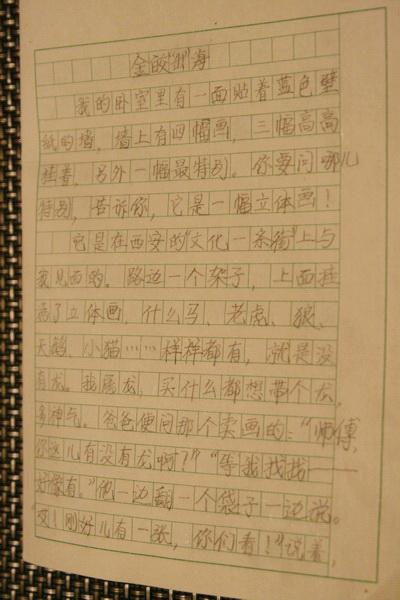 金蛟出海
我的卧室里有一面贴着蓝色壁
纸的墙，墙上有四幅画，三幅高高
挂着，另外一幅最特别。你要问哪儿
特别，告诉你，它是一幅立体画！
它是在西安的“文化一条街”上与
我见面的。路边一个架子，上面挂
满了立体画，什么马、老虎、狼、
天鹅、小猫……样样都有，就是没
有龙。我属龙，买什么都想带个龙，
多神气。爸爸便问那个卖画的：“师傅，
你这儿有没有龙啊？”“等我找找——
好像有。”他一边翻一个袋子一边说。
“哎！刚好儿有一张，你们看！”说着，